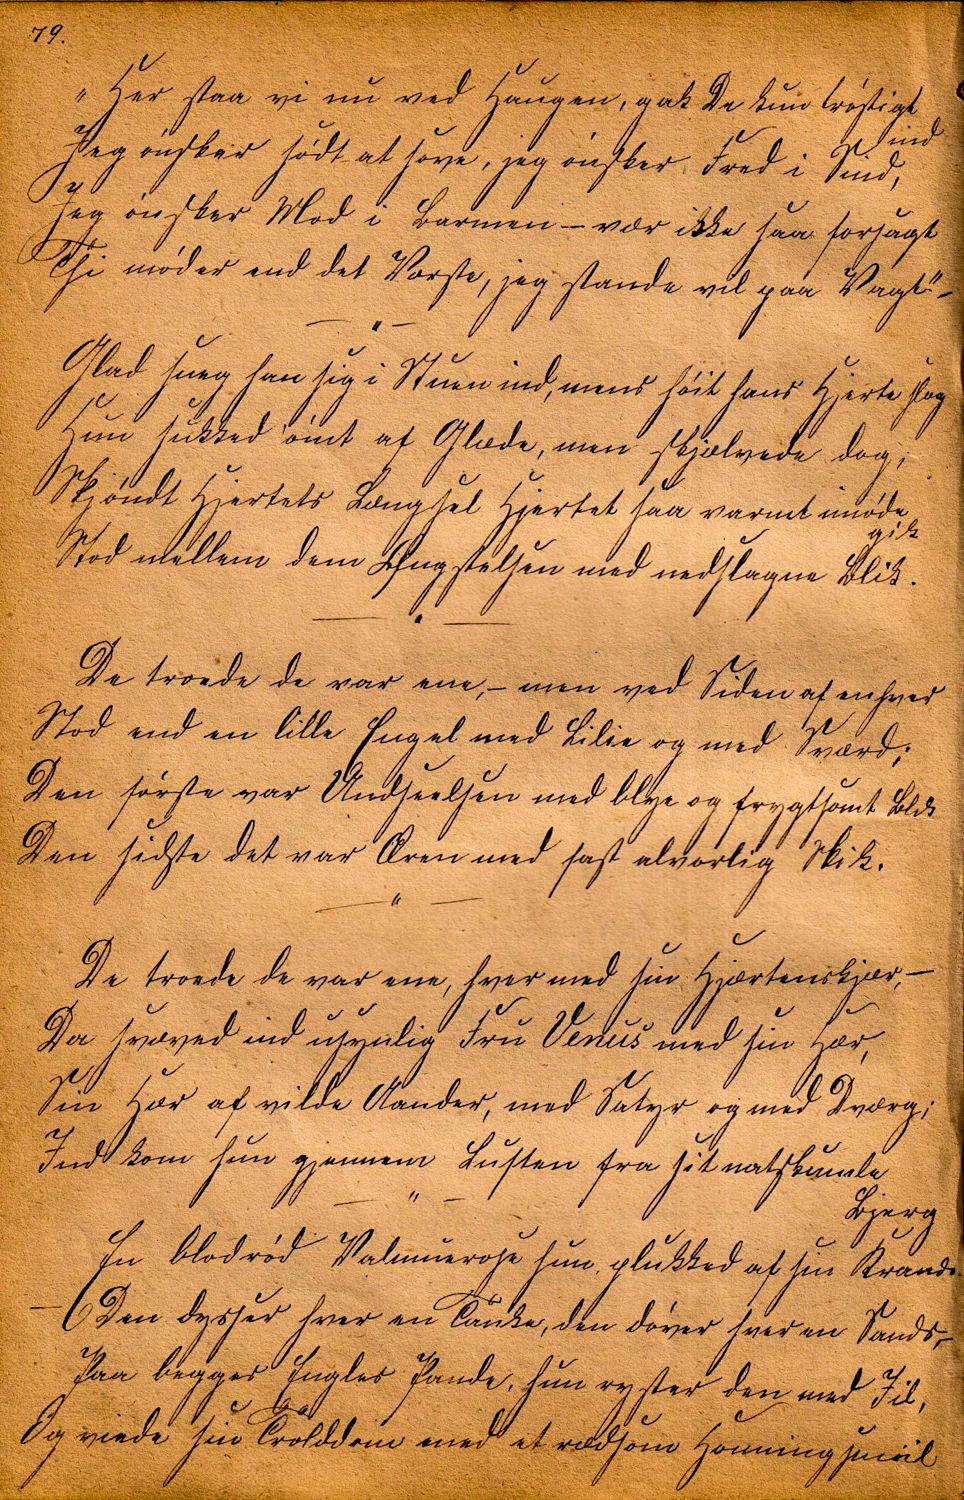 79.
„Her staa vi nu ved Haugen, gak De kun trøstigt
ind
Jeg ønsker sødt at sove, jeg ønsker Fred i Sind,
Jeg ønsker Mod i Barmen – vær ikke saa forsagt
Thi møder end det Værste, jeg stande vil paa Vagt" –
— " —
Glad sneg han sig i Stuen ind, mens høit hans Hjerte slog
Hun sukked ømt af Glæde, men skjælvede dog;
Skjøndt Hjertets Længsel Hjertet saa varmt imøde
gik
Stod mellem dem Ængstelsen med nedslagne Blik.
— " —
De troede de var ene, – men ved Siden af enhver
Stod end en lille Engel med Lilie og med Sværd;
Den første var Undseelsen med blye og frygtsomt Blik
Den sidste det var Æren med fast alvorlig Skik.
— " —
De troede de var ene, hver med sin Hjærtenskjær, –
Da svæved ind usynlig Fru Venus med sin Hær,
Sin Hær af vilde Aander, med Satyr og med Dværg;
Ind kom hun gjennem Luften fra sit natskumle
Bjerg
— " —
En blodrød Valmuerose hun plukked af sin Krands
– Den dysser hver en Tanke, den døver hver en Sands, –
Paa begges Engles Pande, hun ryster den med Iil,
Og viede sin Trolddom med et rædsom Honningsmiil